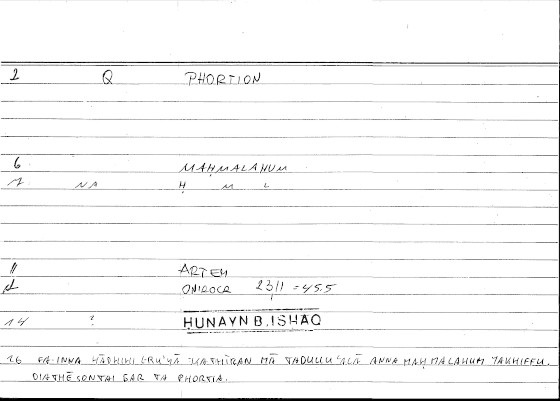 1 Q PHORTION
6 MAḤMALAHUM
7 NA Ḥ M L
11 ARTEM
ONIROCR 23,11 = 45.5
14 ? HUNAYN B. ISHAQ
16 FA-INNA HĀDHIHI L-RU'YĀ KATHĪRAN MĀ TADULLU 'ALĀ ANNA MAḤMALAHUM YAKHIFFU.
DIATHĒSONTAI GAR TA PHORTIA.